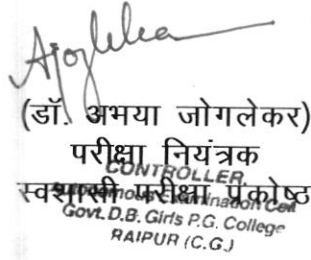 (डॉ. अभया जोगलेकर)
परीक्षा नियंत्रक
CONTROLLER
स्वशासी परीक्षा प्रकोष्ठ
Autonomous Examination Cell
Govt. D.B. Girls P.G. College
RAIPUR (C.G.)